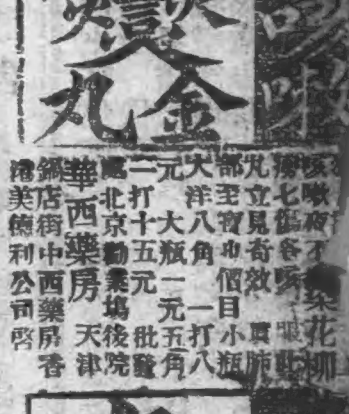 金
丸
咳嗽
花柳
咳嗽夜不
癆七傷各咳 服此
丸立見奇效 實肺
部至寶也價目小瓶
大洋八角 一打八
元 大瓶一元五角
一打十五元 批發
處北京勸業場後院
華西藥房 天津
鍋店街中西藥房香
港美德利公司啓